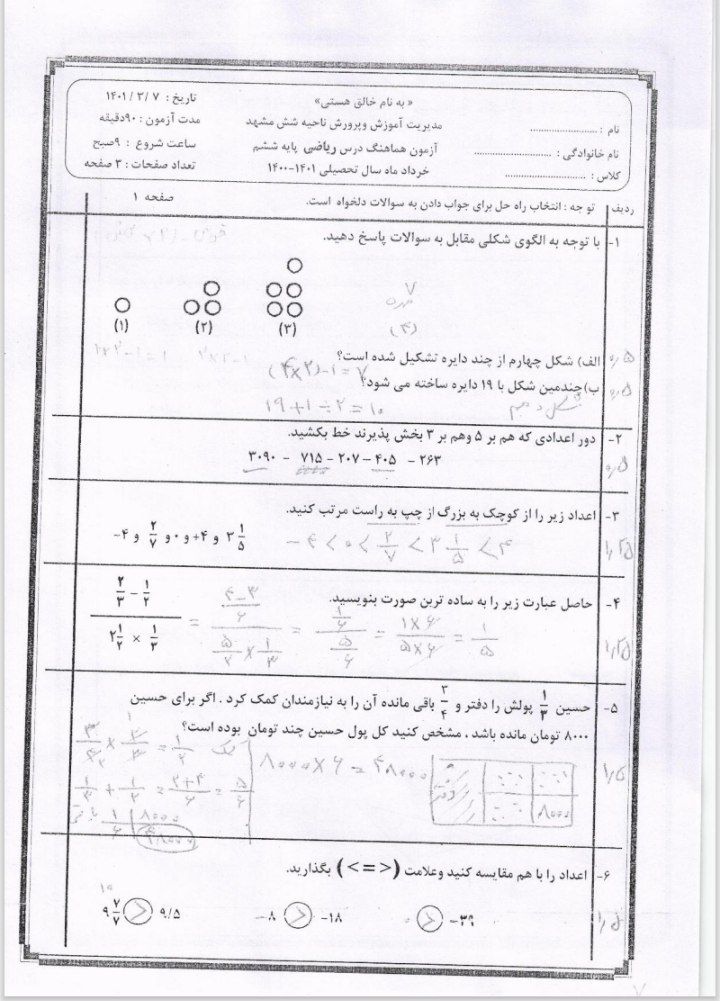 « به نام خالق هستی»
نام : ........................
نام خانوادگی: ........................
کلاس : ........................
مدیریت آموزش وپرورش ناحیه شش مشهد
آزمون هماهنگ درس ریاضی پایه ششم
خرداد ماه سال تحصیلی ۱۴۰۱-۱۴۰۰
تاریخ : ۷ /۳ /۱۴۰۱
مدت آزمون : ۹۰دقیقه
ساعت شروع : ۹صبح
تعداد صفحات : ۳ صفحه
ردیف توجه : انتخاب راه حل برای جواب دادن به سوالات دلخواه است. صفحه ۱
۱- با توجه به الگوی شکلی مقابل به سوالات پاسخ دهید.
(۱) (۲) (۳)
۷
مهره
(۴)
الف) شکل چهارم از چند دایره تشکیل شده است؟ ۰٫۵
(۴×۲)-۱=۷
ب)چندمین شکل با ۱۹ دایره ساخته می شود؟ ۰٫۵
شکل دهم ۱۹+۱÷۲=۱۰
۲- دور اعدادی که هم بر ۵ وهم بر ۳ بخش پذیرند خط بکشید.
۲۶۳ - ۴۰۵ - ۲۰۷ - ۷۱۵ - ۳۰۹۰
۰٫۵
۳- اعداد زیر را از کوچک به بزرگ از چپ به راست مرتب کنید.
۳ ۱/۵ و ۴+ و ۰ و ۲/۷ و ۴-
-۴<۰<۲/۷<۳ ۱/۵<۴
۱٫۲۵
۴- حاصل عبارت زیر را به ساده ترین صورت بنویسید.
(۲/۳ - ۱/۲) / (۲ ۱/۲ × ۱/۳) = ((۴-۳)/۶) / (۵/۲ × ۱/۳) = (۱/۶) / (۵/۶) = (۱×۶)/(۵×۶) = ۱/۵
۱٫۲۵
۵- حسین ۱/۳ پولش را دفتر و ۳/۴ باقی مانده آن را به نیازمندان کمک کرد . اگر برای حسین
۸۰۰۰ تومان مانده باشد ، مشخص کنید کل پول حسین چند تومان بوده است؟
۳/۴ × ۲/۳ = ۱/۲ کمک
۸۰۰۰×۶=۴۸۰۰۰
دفتر
۸۰۰۰
۱/۳ + ۱/۲ = (۲+۳)/۶ = ۵/۶
۱/۶ ۸۰۰۰
۴۸۰۰۰
۶- اعداد را با هم مقایسه کنید وعلامت (< = >) بگذارید.
۹ ۷/۷ > ۹/۵
-۸ > -۱۸
۰ > -۳۹
۱٫۵